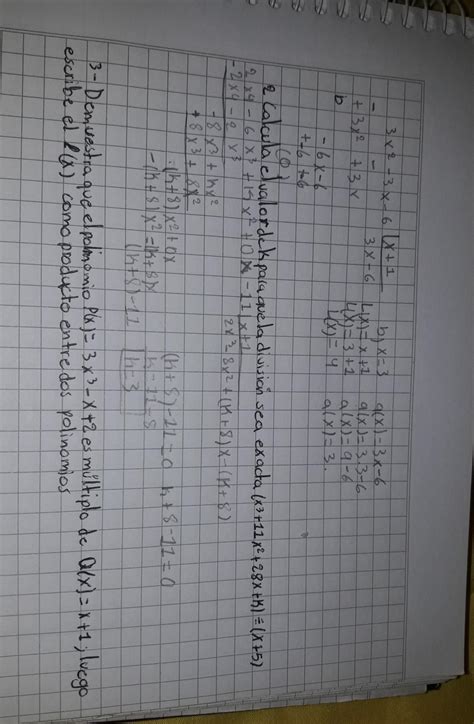 3x² - 3x - 6 | x + 1
- 3x - 6
+ 3x² + 3x
b - 6x - 6
+ 6 + 6
(0)
b) x = 3 q(x) = 3x - 6
L(x) = x + 1 q(x) = 3·3 - 6
L(x) = 3 + 1 q(x) = 9 - 6
L(x) = 4 q(x) = 3.
2 Calcula el valor de k para que la division sea exacta (x³ + 11x² + 28x + k) = (x + 5)
2x⁴ - 6x³ + kx² + 0x - 11 | x + 1
- 2x⁴ - 2x³ 2x³ - 8x² + (k + 8)x - (k + 8)
- 8x³ + kx²
+ 8x³ + 8x²
(k + 8)x² + 0x (k + 8) - 11 = 0 k + 8 - 11 = 0
- (k + 8)x² = (k + 8)x k = 11 - 8
(k + 8) - 11 k = 3
3 - Demuestra que el polinomio P(x) = 3x³ - x + 2 es múltiplo de Q(x) = x + 1; luego
escribe el P(x) como producto entre dos polinomios